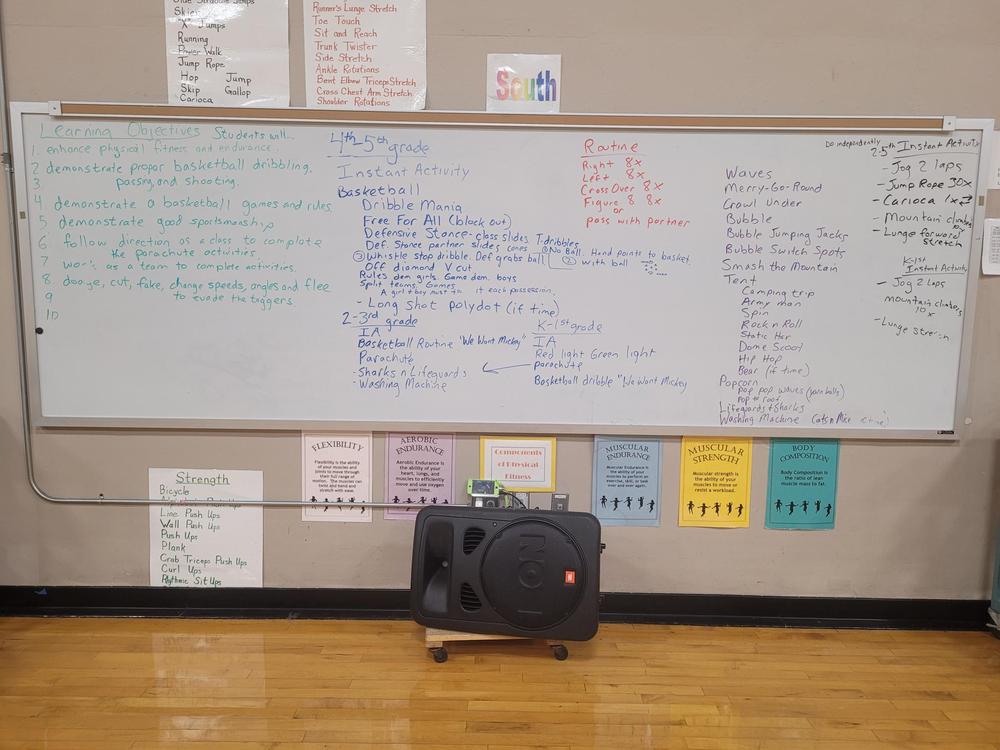 Skier
"X" Jumps
Running
Power Walk
Jump Rope
Hop Jump
Skip Gallop
Carioca
Runner's Lunge Stretch
Toe Touch
Sit and Reach
Trunk Twister
Side Stretch
Ankle Rotations
Bent Elbow Triceps Stretch
Cross Chest Arm Stretch
Shoulder Rotations
South
Learning Objectives Students will...
1. enhance physical fitness and endurance.
2 demonstrate proper basketball dribbling,
3. passing and shooting.
4. demonstrate a basketball games and rules
5 demonstrate good sportsmanship
6 follow direction as a class to complete
the parachute activities.
7 work as a team to complete activities.
8. dodge, cut, fake, change speeds, angles and flee
9 to evade the taggers
10
4th-5th grade
Instant Activity
Basketball
Dribble Mania
Free For All (block out)
Defensive Stance-class slides T-dribbles
Def. Stance partner slides cones ① No Ball. Hand points to basket
③ Whistle stop dribble. Def grabs ball ② with ball
Off diamond V cut
Rules dem girls. Game dem. boys
Split teams. Games
A girl + boy must it each possession.
- Long shot polydot (if time)
2-3rd grade
IA
Basketball Routine "We Want Mickey"
Parachute
- Sharks n Lifeguards
- Washing Machine
K-1st grade
IA
Red light Green light
parachute
Basketball dribble "We Want Mickey
Routine
Right 8x
Left 8x
Cross Over 8x
Figure 8 8x
or
pass with partner
Waves
Merry-Go-Round
Crawl Under
Bubble
Bubble Jumping Jacks
Bubble Switch Spots
Smash the Mountain
Tent
Camping trip
Army man
Spin
Rock n Roll
Static Hair
Dome Scoot
Hip Hop
Bear (if time)
Popcorn
Pop pop waves (yarn balls)
Pop to roof
Lifeguards + Sharks
Washing Machine (Cats n Mice
Do independently
2-5th Instant Activity
- Jog 2 laps
- Jump Rope 30x
- Carioca 1x
- Mountain climbers
- Lunge forward
stretch
K-1st
Instant Activity
- Jog 2 Laps
mountain climbers
10x
- Lunge Stretch
FLEXIBILITY
Flexibility is the ability
of your muscles and
joints to move through
their full range of
motion. The muscles can
twist and bend and
stretch with ease.
AEROBIC
ENDURANCE
Aerobic Endurance is
the ability of your
heart, lungs, and
muscles to efficiently
move and use oxygen
over time.
Components
of Physical
Fitness
MUSCULAR
ENDURANCE
Muscular Endurance is
the ability of your
muscles to perform an
exercise, skill, or task
over and over again.
MUSCULAR
STRENGTH
Muscular strength is
the ability of your
muscles to move or
resist a workload.
BODY
COMPOSITION
Body Composition is
the ratio of lean
muscle mass to fat.
Strength
Bicycle
Line Push Ups
Wall Push Ups
Push Ups
Plank
Crab Triceps Push Ups
Curl Ups
Rhythmic Sit Ups
ION
JBL